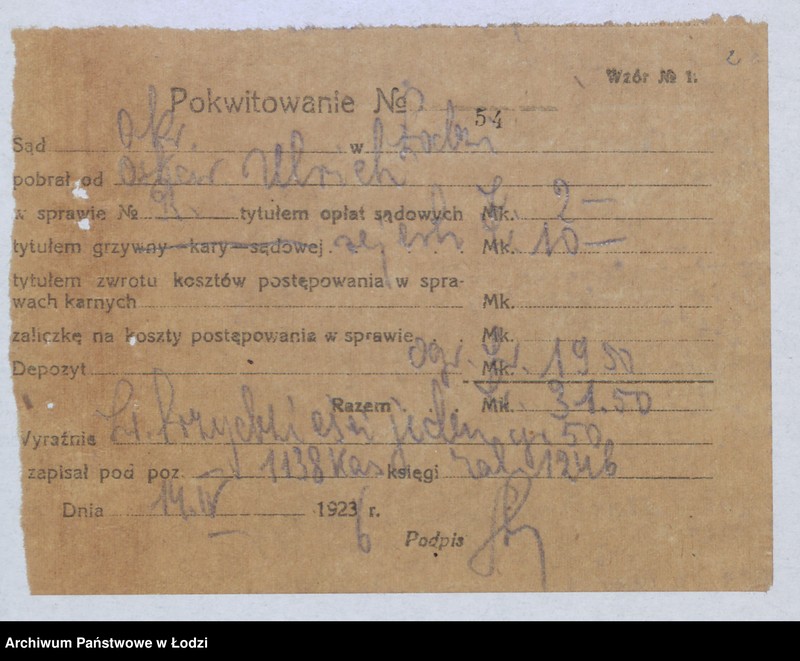 2
Wzór № 1.
Pokwitowanie № 54
Sąd okr. w Łodzi
pobrał od Oskar Ulrich
w sprawie № tytułem opłat sądowych Mk. 2—
tytułem grzywny kary sądowej rejestr Mk. 10—
tytułem zwrotu kosztów postępowania w spra-
wach karnych Mk.
zaliczkę na koszty postępowania w sprawie Mk.
Depozyt ogł. Mk. 19 50
Razem Mk. 31.50
Wyraźnie Zł. trzydzieści jeden gr 50
zapisał pod poz. 1138 kas księgi 1246
Dnia 14.IV 1923 6 r.
Podpis
Archiwum Państwowe w Łodzi